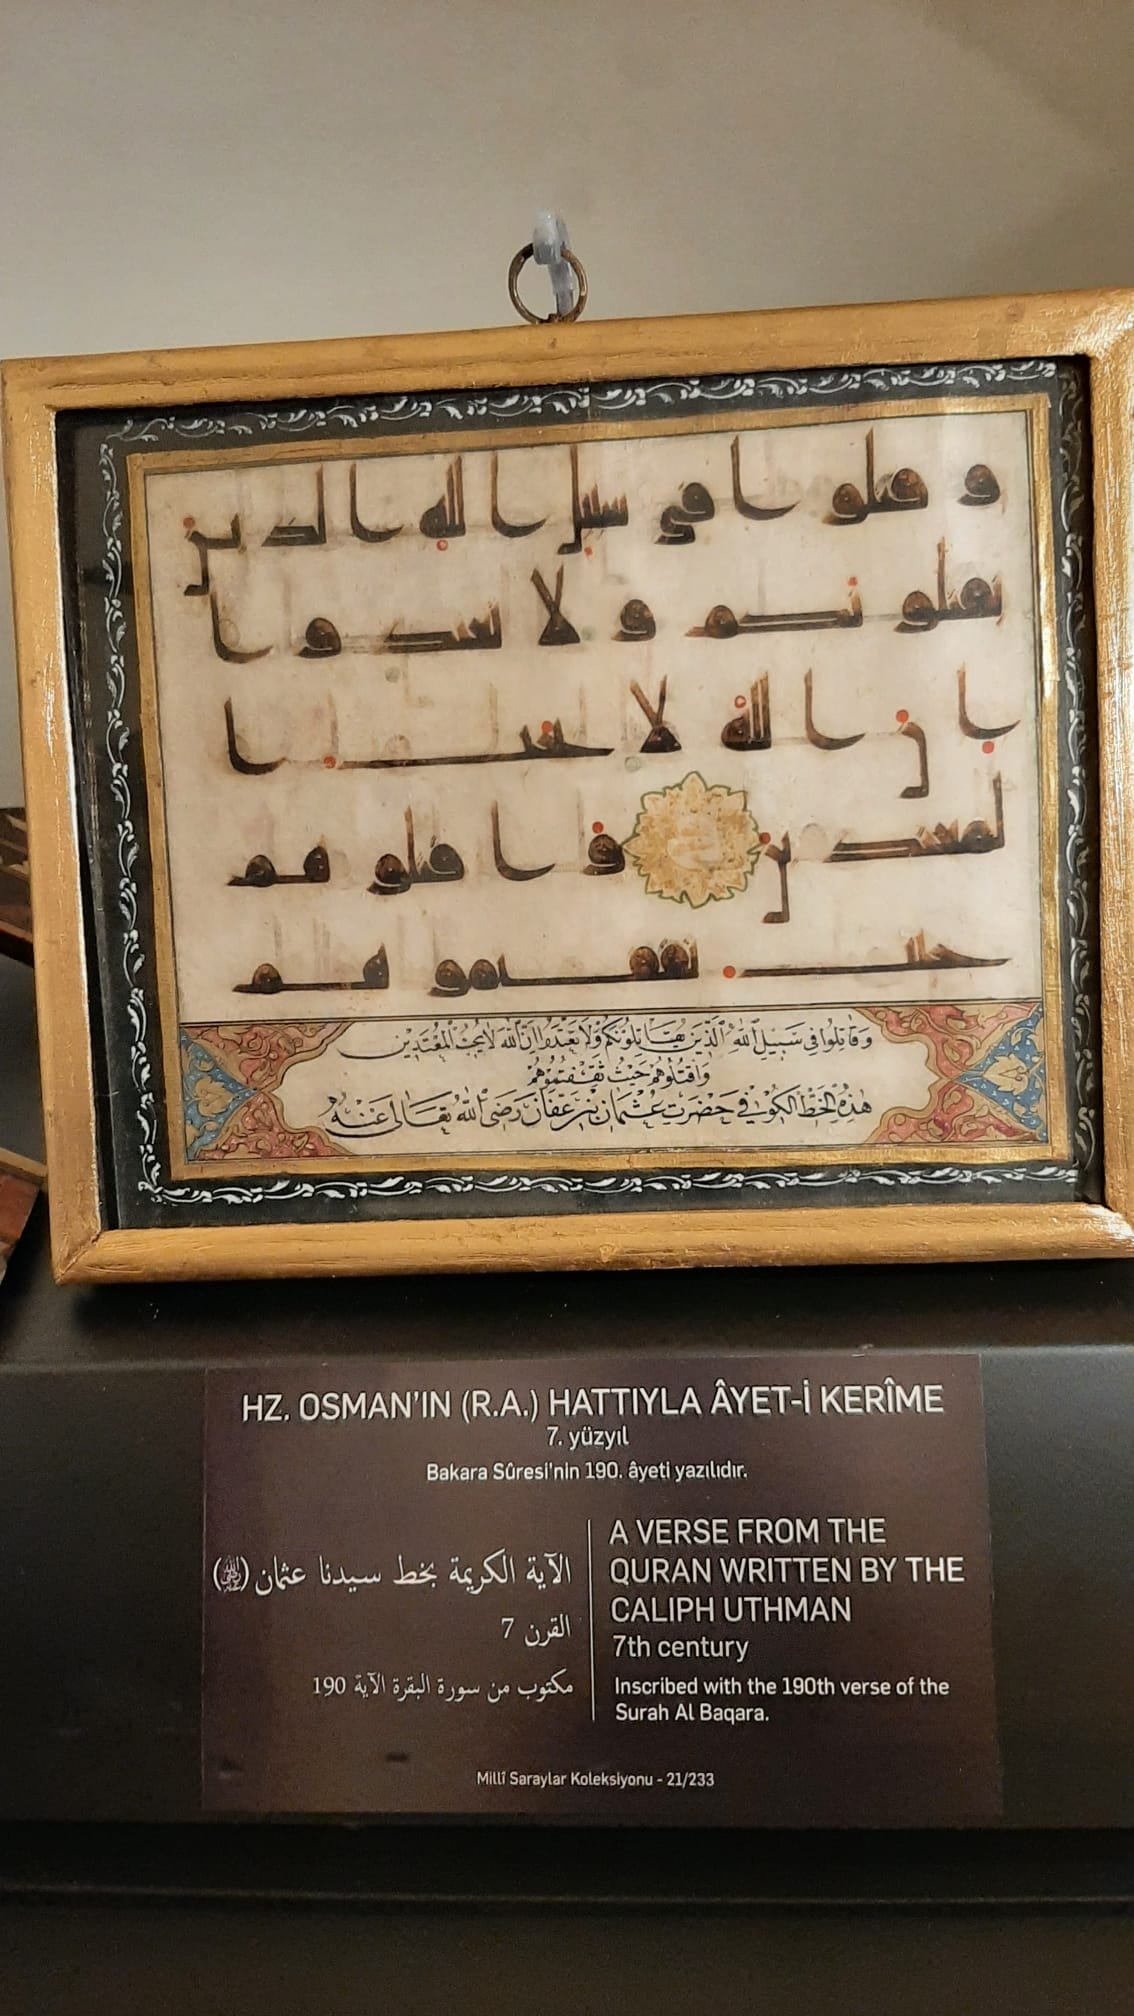 و قتلوا في سبيل الله الذين
يقتلونكم ولا تعتدوا
إن الله لا يحب ا
لمعتدين واقتلوهم
حيث ثقفتموهم
وَقَاتِلُوا فِي سَبِيلِ اللهِ الَّذِينَ يُقَاتِلُونَكُمْ وَلَا تَعْتَدُوا اِنَّ اللهَ لَا يُحِبُّ الْمُعْتَدِينَ
وَاقْتُلُوهُمْ حَيْثُ ثَقِفْتُمُوهُمْ
هٰذِهِ الْخَطُّ الْكُوفِي حَضْرَتِ عُثْمَان بْنِ عَفَّانْ رَضِىَ اللهُ تَعَالٰى عَنْهُ
HZ. OSMAN'IN (R.A.) HATTIYLA ÂYET-İ KERÎME
7. yüzyıl
Bakara Sûresi'nin 190. âyeti yazılıdır.
الآية الكريمة بخط سيدنا عثمان (رضي الله عنه)
القرن 7
مكتوب من سورة البقرة الآية 190
A VERSE FROM THE
QURAN WRITTEN BY THE
CALIPH UTHMAN
7th century
Inscribed with the 190th verse of the
Surah Al Baqara.
Millî Saraylar Koleksiyonu - 21/233